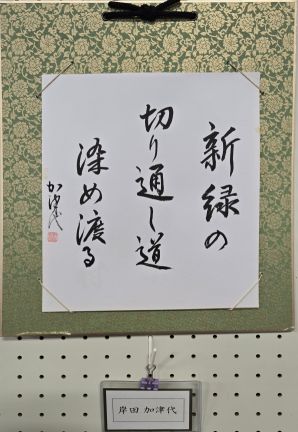 新緑の
切り通し道
染め渡る
加津代
岸田 加津代